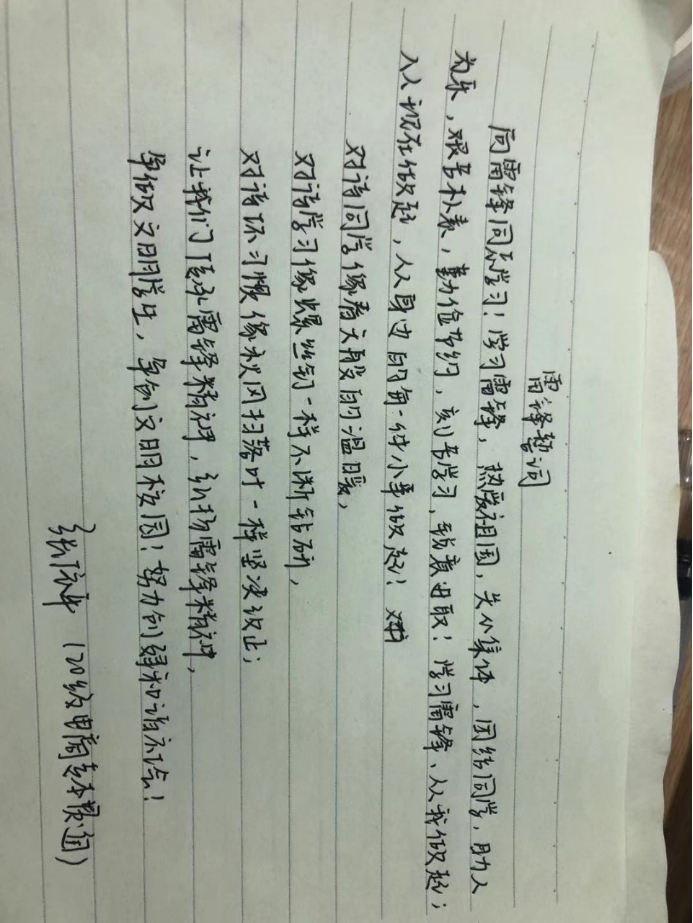 雷锋誓词
向雷锋同志学习！学习雷锋，热爱祖国，关心集体，团结同学，助人
为乐，艰苦朴素，勤俭节约，刻苦学习，锐意进取！学习雷锋、从我做起；
从现在做起，从身边的每一件小事做起！对
对待同学像春天般的温暖，
对待学习像螺丝钉一样不断钻研，
对待坏习惯像秋风扫落叶一样坚决改正；
让我们传承雷锋精神，弘扬雷锋精神，
争做文明学生，争创文明校园！努力创建和谐社会！
张 （20级电商专本贯通）